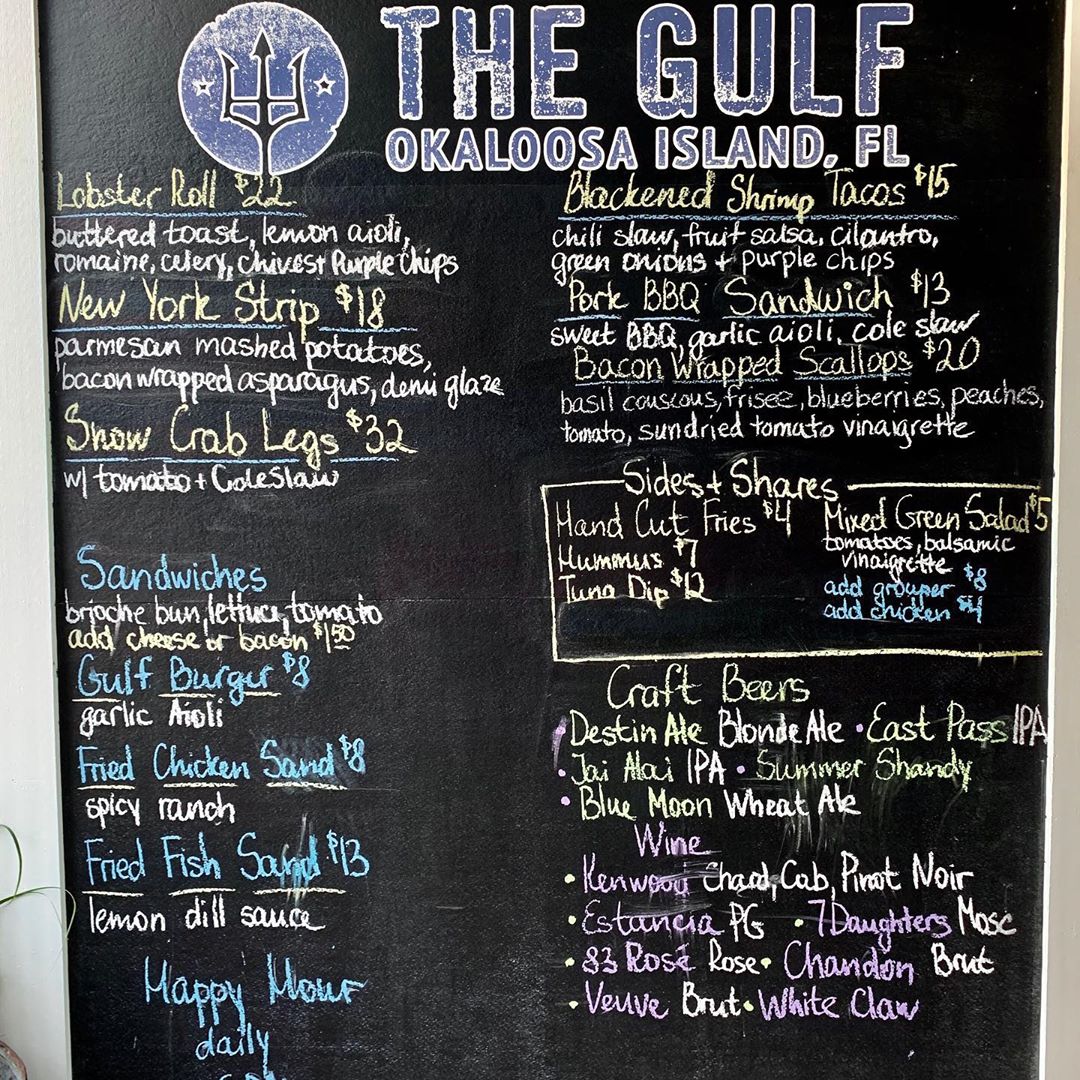 THE GULF
OKALOOSA ISLAND, FL
Lobster Roll $22
buttered toast, lemon aioli,
romaine, celery, chives + Purple Chips
New York Strip $18
parmesan mashed potatoes,
bacon wrapped asparagus, demi glaze
Snow Crab Legs $32
w/ tomato + Coleslaw
Sandwiches
brioche bun, lettuce, tomato
add cheese or bacon $1.50
Gulf Burger $8
garlic Aioli
Fried Chicken Sand $8
spicy ranch
Fried Fish Sand $13
lemon dill sauce
Happy Hour
daily
Blackened Shrimp Tacos $15
chili slaw, fruit salsa, cilantro,
green onions + purple chips
Pork BBQ Sandwich $13
sweet BBQ, garlic aioli, cole slaw
Bacon Wrapped Scallops $20
basil couscous, frisee, blueberries, peaches,
tomato, sundried tomato vinaigrette
Sides + Shares
Hand Cut Fries $4
Hummus $7
Tuna Dip $12
Mixed Green Salad $5
tomatoes, balsamic
vinaigrette
add grouper $8
add chicken $4
Craft Beers
• Destin Ale Blonde Ale • East Pass IPA
• Jai Alai IPA • Summer Shandy
• Blue Moon Wheat Ale
Wine
• Kenwood Chard, Cab, Pinot Noir
• Estancia PG • 7 Daughters Mosc
• 83 Rosé Rose • Chandon Brut
• Veuve Brut • White Claw